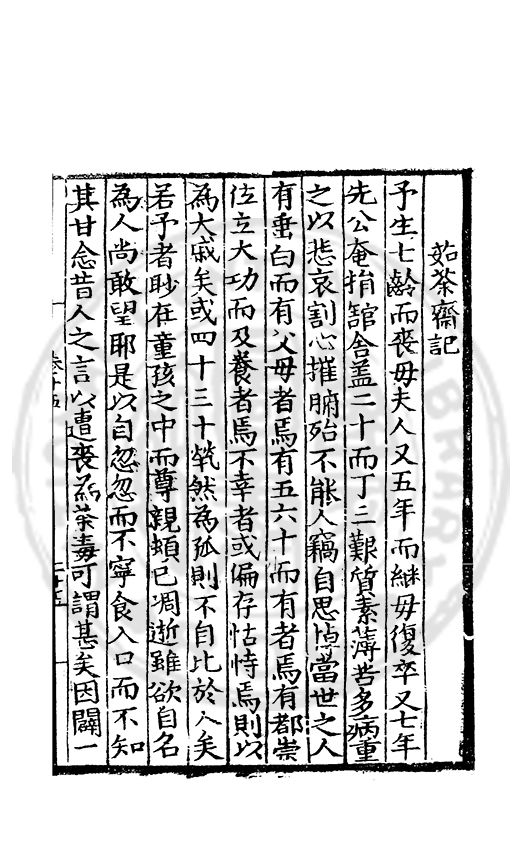 茹荼齋記
予生七齡而喪母夫人又五年而継母復卒又七年
先公奄捐舘舍盖二十而丁三艱質素薄苦多病重
之以悲哀割心摧腑殆不能人竊自思惟當世之人
有垂白而有父母者焉有五六十而有者焉有都崇
位立大功而及養者焉不幸者或偏存怙恃焉則以
為大戚矣或四十三十煢然為孤則不自比於人矣
若予者眇在童孩之中而尊親頻已凋逝雖欲自名
為人尚敢望耶是以自忽忽而不寧食入口而不知
其甘念昔人之言以遭喪為荼毒可謂甚矣因闢一
卷十五
二十五